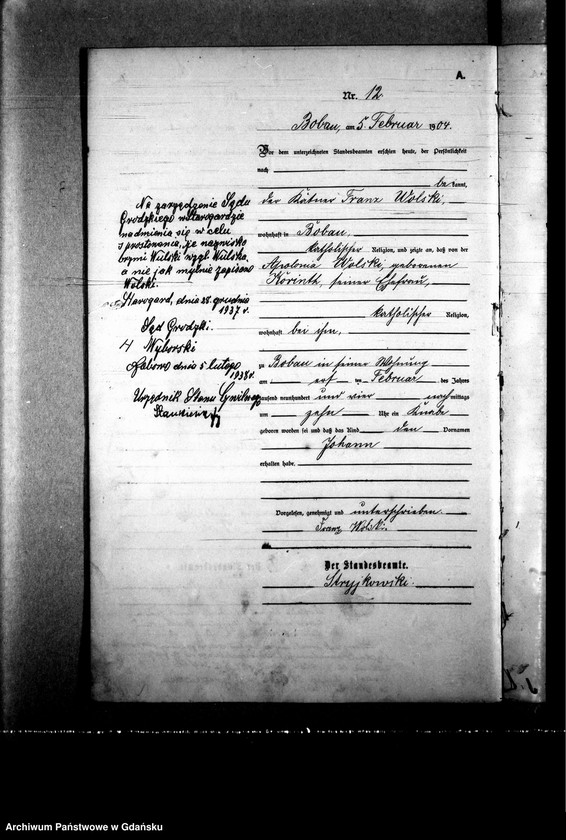 A.
Nr. 12.
Bobau, am 5. Februar 1904.
Vor dem unterzeichneten Standesbeamten erschien heute, der Persönlichkeit
nach
bekannt,
der Kätner Franz Wolski,
wohnhaft in Bobau,
katholischer Religion, und zeigte an, daß von der
Apolonia Wolski, geborenen
Korinth, seiner Ehefrau,
katholischer Religion,
wohnhaft bei ihm,
zu Bobau in seiner Wohnung
am erst ten Februar des Jahres
tausend neunhundert und vier mittags
um zehn Uhr ein Knabe
geboren worden sei und daß das Kind den Vornamen
Johann
erhalten habe.
Vorgelesen, genehmigt und unterschrieben.
Franz Wolski.
Der Standesbeamte.
Stryjkowski.
Na zarządzenie Sądu
Grodzkiego w Starogardzie
nadmienia się w celu
sprostowania, że nazwisko
brzmi Wulski wzgl. Wulska,
a nie jak mylnie zapisano
Wolski.
Starogard, dnia 28. grudnia
1937 r.
Sąd Grodzki.
Wyborski
dnia 5 lutego
1938 r.
Urzędnik Stanu Cywilnego
Archiwum Państwowe w Gdańsku